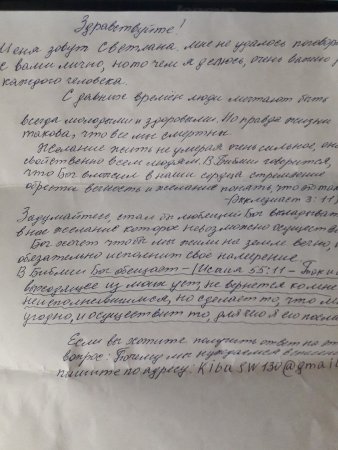 Здравствуйте!
Меня зовут Светлана. Мне не удалось поговорить
с вами лично, но то чем я делюсь, очень важно для
каждого человека.
С давних времён люди мечтают быть
всегда молодыми и здоровыми. Но правда жизни
такова, что все мы смертны.
Желание жить не умирая очень сильное, оно
свойственно всем людям. В Библии говорится,
что Бог вложил в наши сердца стремление
обрести вечность и желание понять, что это такое
Экклезиаст 3:11)
Задумайтесь, стал бы любящий Бог вкладывать
в нас желание которое невозможно осуществить
Бог хочет чтобы мы жили на земле вечно, и
обязательно исполнит своё намерение.
В Библии Бог обещает - (Исаия 55:11 -
выходящее из моих уст, не вернётся ко мне
неисполнившимся, но сделает то, что мне
угодно, и осуществит то, для чего я его послал
Если вы хотите получить ответ на
вопрос: Почему мы нуждаемся в
пишите по адресу: Kiba SW 130@gmail